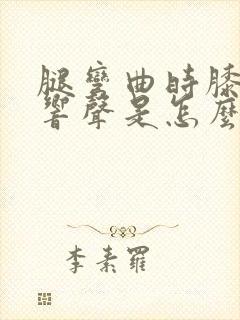 腿彎曲時膝
響聲是怎麼
李素羅